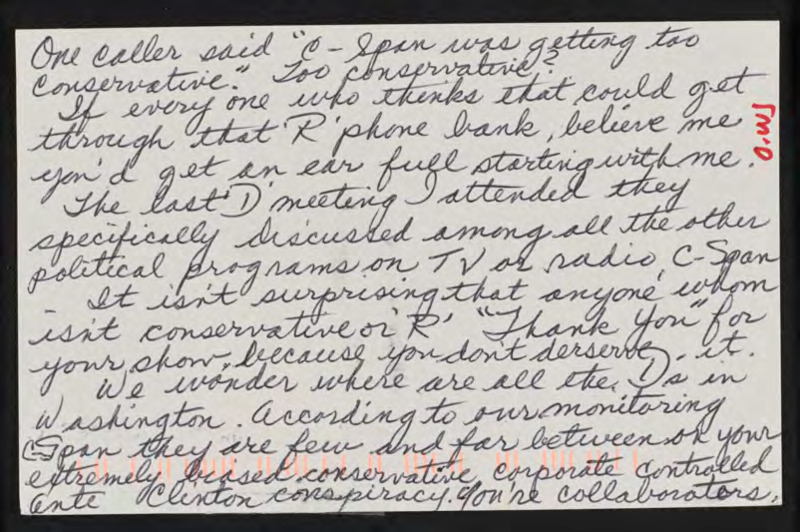 One caller said "C-Span was getting too
conservative." Too conservative?
If every one who thinks that could get
through that 'R' phone bank, believe me
you'd get an ear full starting with me.
The last 'D' meeting I attended they
specifically discussed among all the other
political programs on TV or radio, C-Span
- It isn't surprising that anyone whom
isn't conservative or 'R' "Thank You" for
your show, because you don't derserve it.
We wonder where are all the Ds in
Washington. According to our monitoring
C-Span they are few and far between on your
extremely biased conservative corporate controlled
ante Clinton conspiracy. You're collaborators.